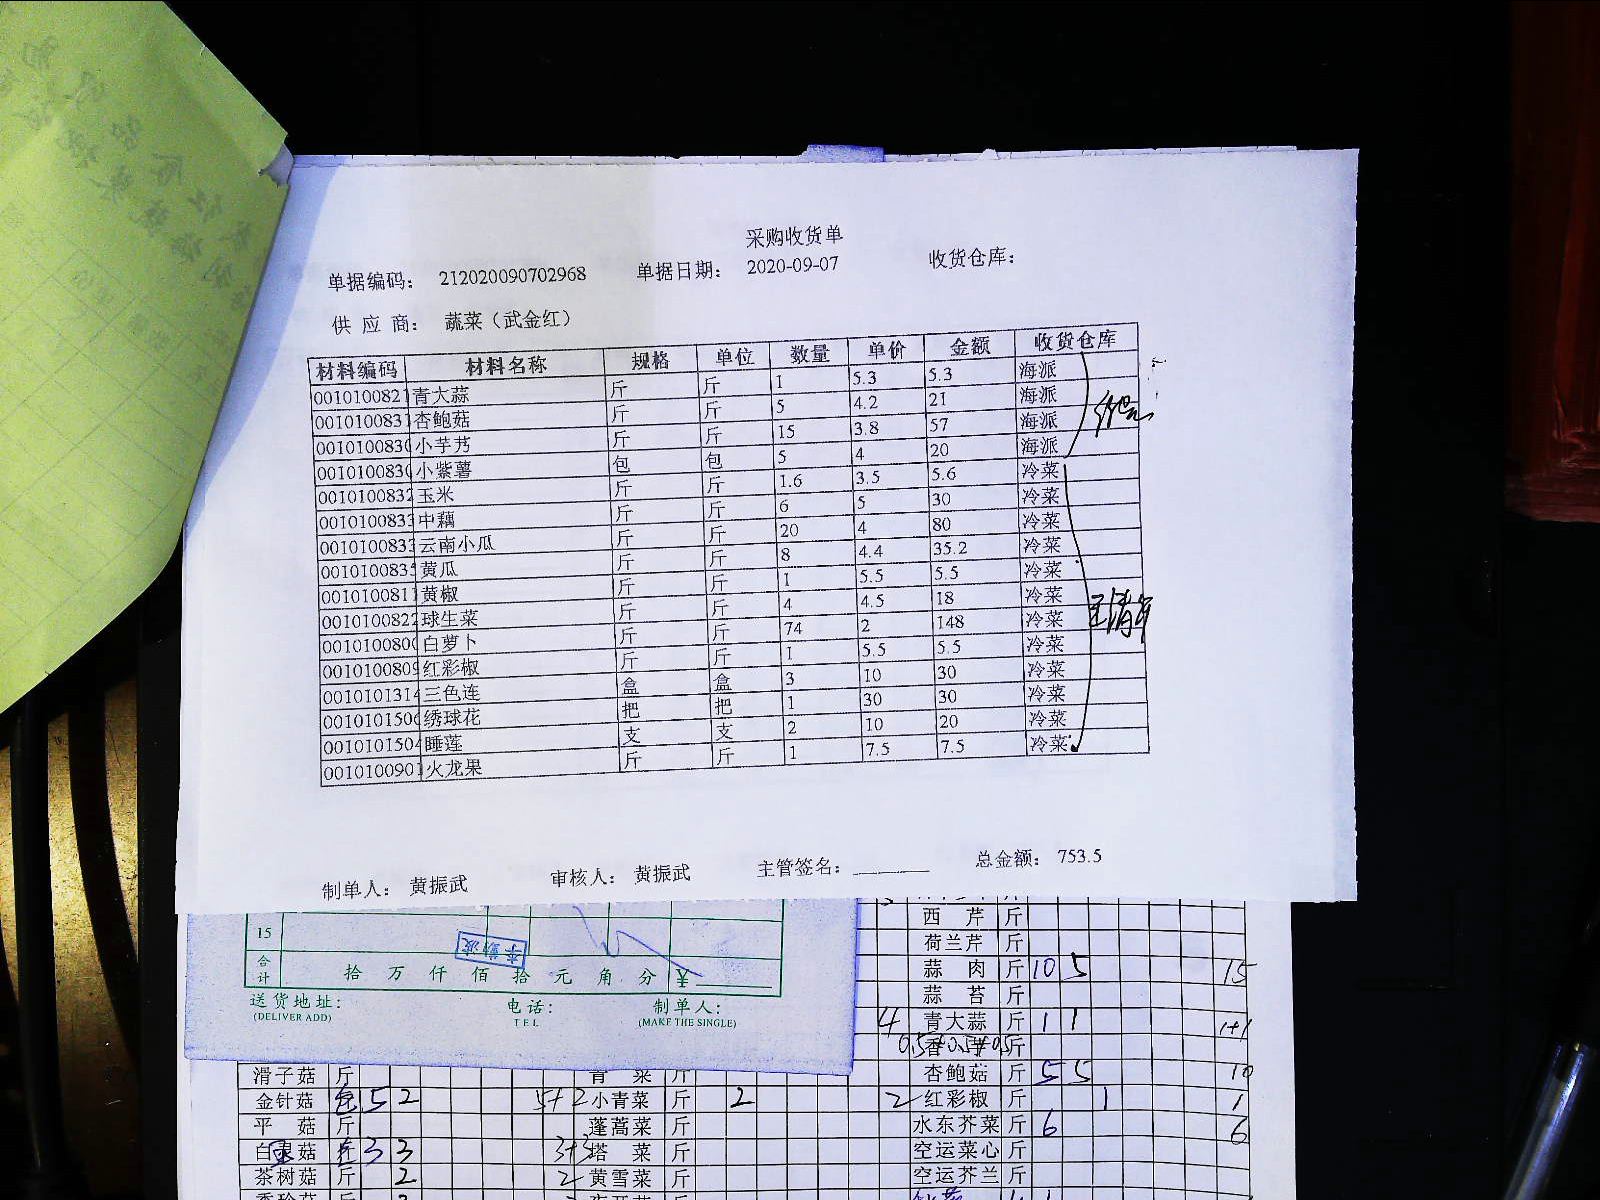 采购收货单
单据编码： 212020090702968 单据日期： 2020-09-07 收货仓库：
供 应 商： 蔬菜（武金红）
材料编码 材料名称 规格 单位 数量 单价 金额 收货仓库
0010100821 青大蒜 斤 斤 1 5.3 5.3 海派
0010100831 杏鲍菇 斤 斤 5 4.2 21 海派
001010083 小芋艿 斤 斤 15 3.8 57 海派
001010083 小紫薯 包 包 5 4 20 海派
0010100832 玉米 斤 斤 1.6 3.5 5.6 冷菜
001010083 中藕 斤 斤 6 5 30 冷菜
001010083 云南小瓜 斤 斤 20 4 80 冷菜
001010083 黄瓜 斤 斤 8 4.4 35.2 冷菜
0010100811 黄椒 斤 斤 1 5.5 5.5 冷菜
0010100822 球生菜 斤 斤 4 4.5 18 冷菜
001010080 白萝卜 斤 斤 74 2 148 冷菜
0010100809 红彩椒 斤 斤 1 5.5 5.5 冷菜
0010101314 三色连 盒 盒 3 10 30 冷菜
001010150 绣球花 把 把 1 30 30 冷菜
0010101504 睡莲 支 支 2 10 20 冷菜
0010100901 火龙果 斤 斤 1 7.5 7.5 冷菜
制单人： 黄振武 审核人： 黄振武 主管签名： 总金额： 753.5
15
合计 拾 万 仟 佰 拾 元 角 分 ¥
送货地址： 电话： 制单人：
(DELIVER ADD) TEL (MAKE THE SINGLE)
西 芹 斤
荷兰芹 斤
蒜 肉 斤 10 5 15
蒜 苔 斤
4 青大蒜 斤 1 1 1+1
斤
杏鲍菇 斤 5 5 10
滑子菇 斤 青 菜 斤
金针菇 包 5 2 5+2 小青菜 斤 2 2 红彩椒 斤 1 1
平 菇 斤 蓬蒿菜 斤 水东芥菜 斤 6 6
菇 3 3 3+3 塔 菜 斤 空运菜心 斤
茶树菇 斤 2 2 黄雪菜 斤 空运芥兰 斤